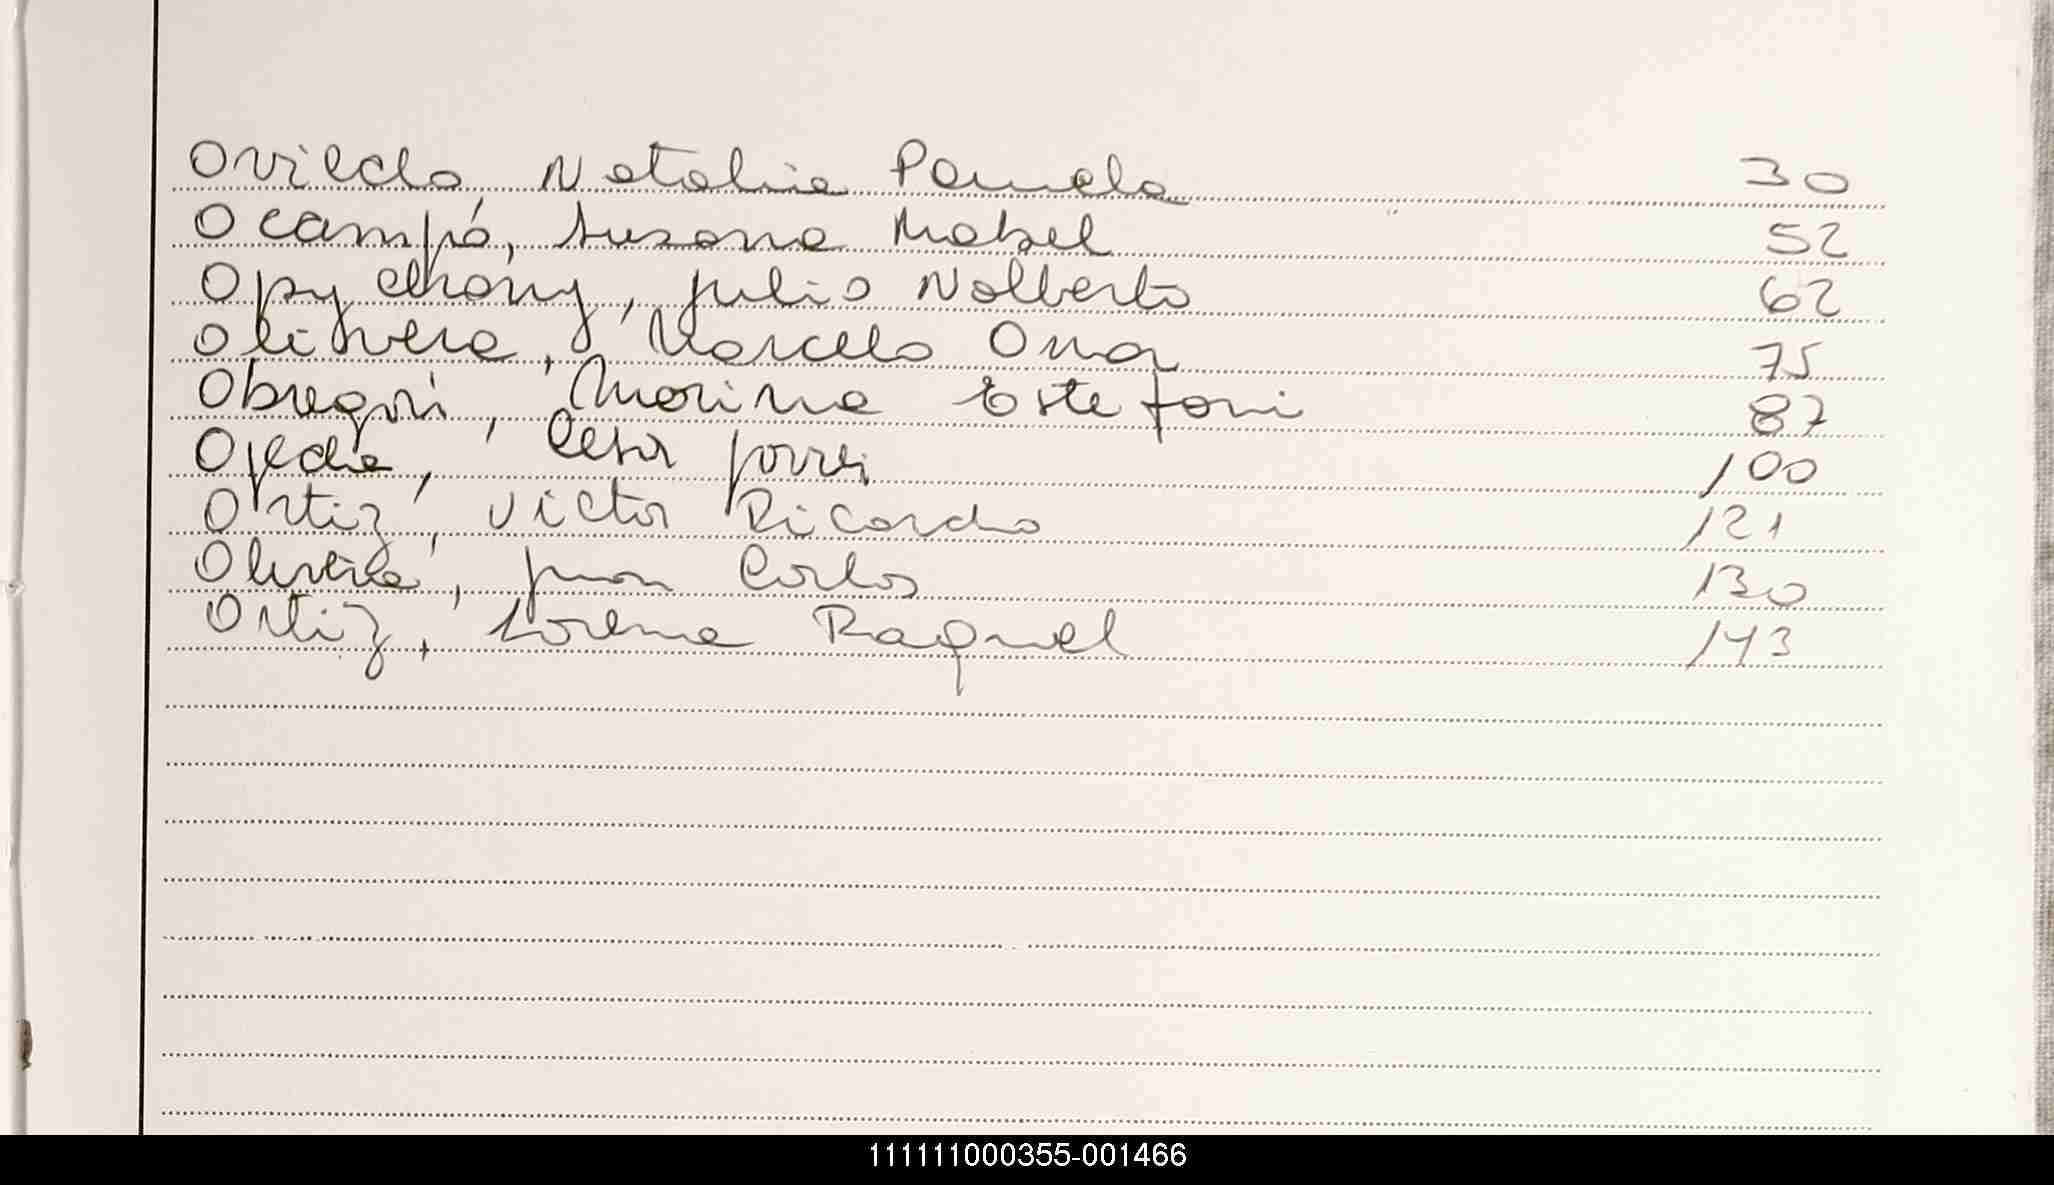 Oviedo, Natalia Pamela 30
Ocampo, Susana Mabel 52
Julio Nolberto 62
Olivera, Marcelo Omar 75
Obregón, Marina Estefani 87
Ojeda, Cesar Jorge 100
Ortiz, Victor Ricardo 121
Oliveira, Juan Carlos 130
Ortiz, Lorena Raquel 143
111111000355-001466